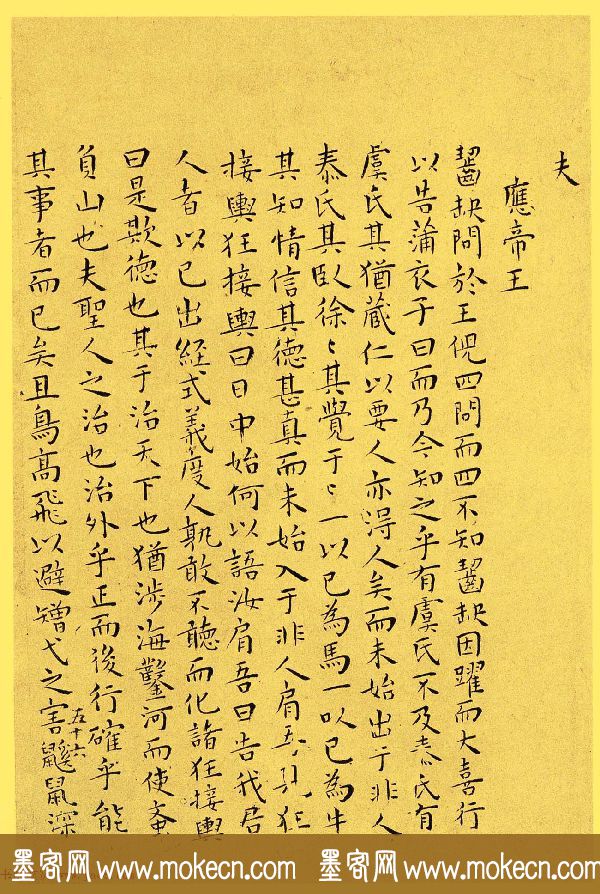 夫
應帝王
齧缺問於王倪四問而四不知齧缺因躍而大喜行
以告蒲衣子曰而乃今知之乎有虞氏不及泰氏有
虞氏其猶蔵仁以要人亦淂人矣而未始出于非人
泰氏其卧徐〻其覺于〻一以已為馬一以已為牛
其知情信其德甚真而未始入于非人肩吾見狂
接輿狂接輿曰日中始何以語汝肩吾曰告我君
人者以已出經式義度人孰敢不聽而化諸狂接輿
曰是欺德也其于治天下也猶涉海鑿河而使蚉
負山也夫聖人之治也治外乎正而後行確乎能
其事者而已矣且鳥高飛以避矰弋之害鼷鼠深
五十六
墨客网 www.mokecn.com 墨客网 www.mokecn.com